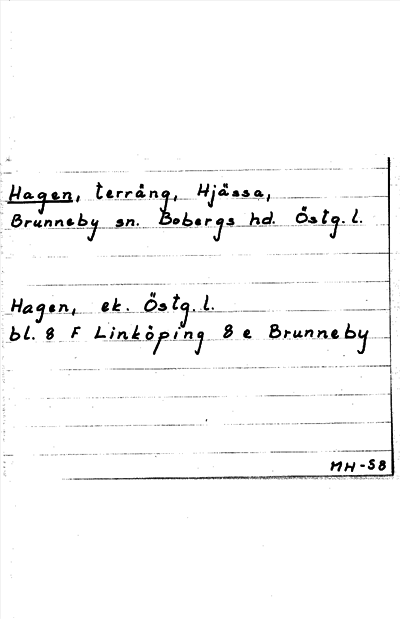 Hagen, terräng, Hjässa,
Brunneby sn. Bobergs hd. Östg. l.
Hagen, ek. Östg. l.
bl. 8 F Linköping 8 e Brunneby
MH-58